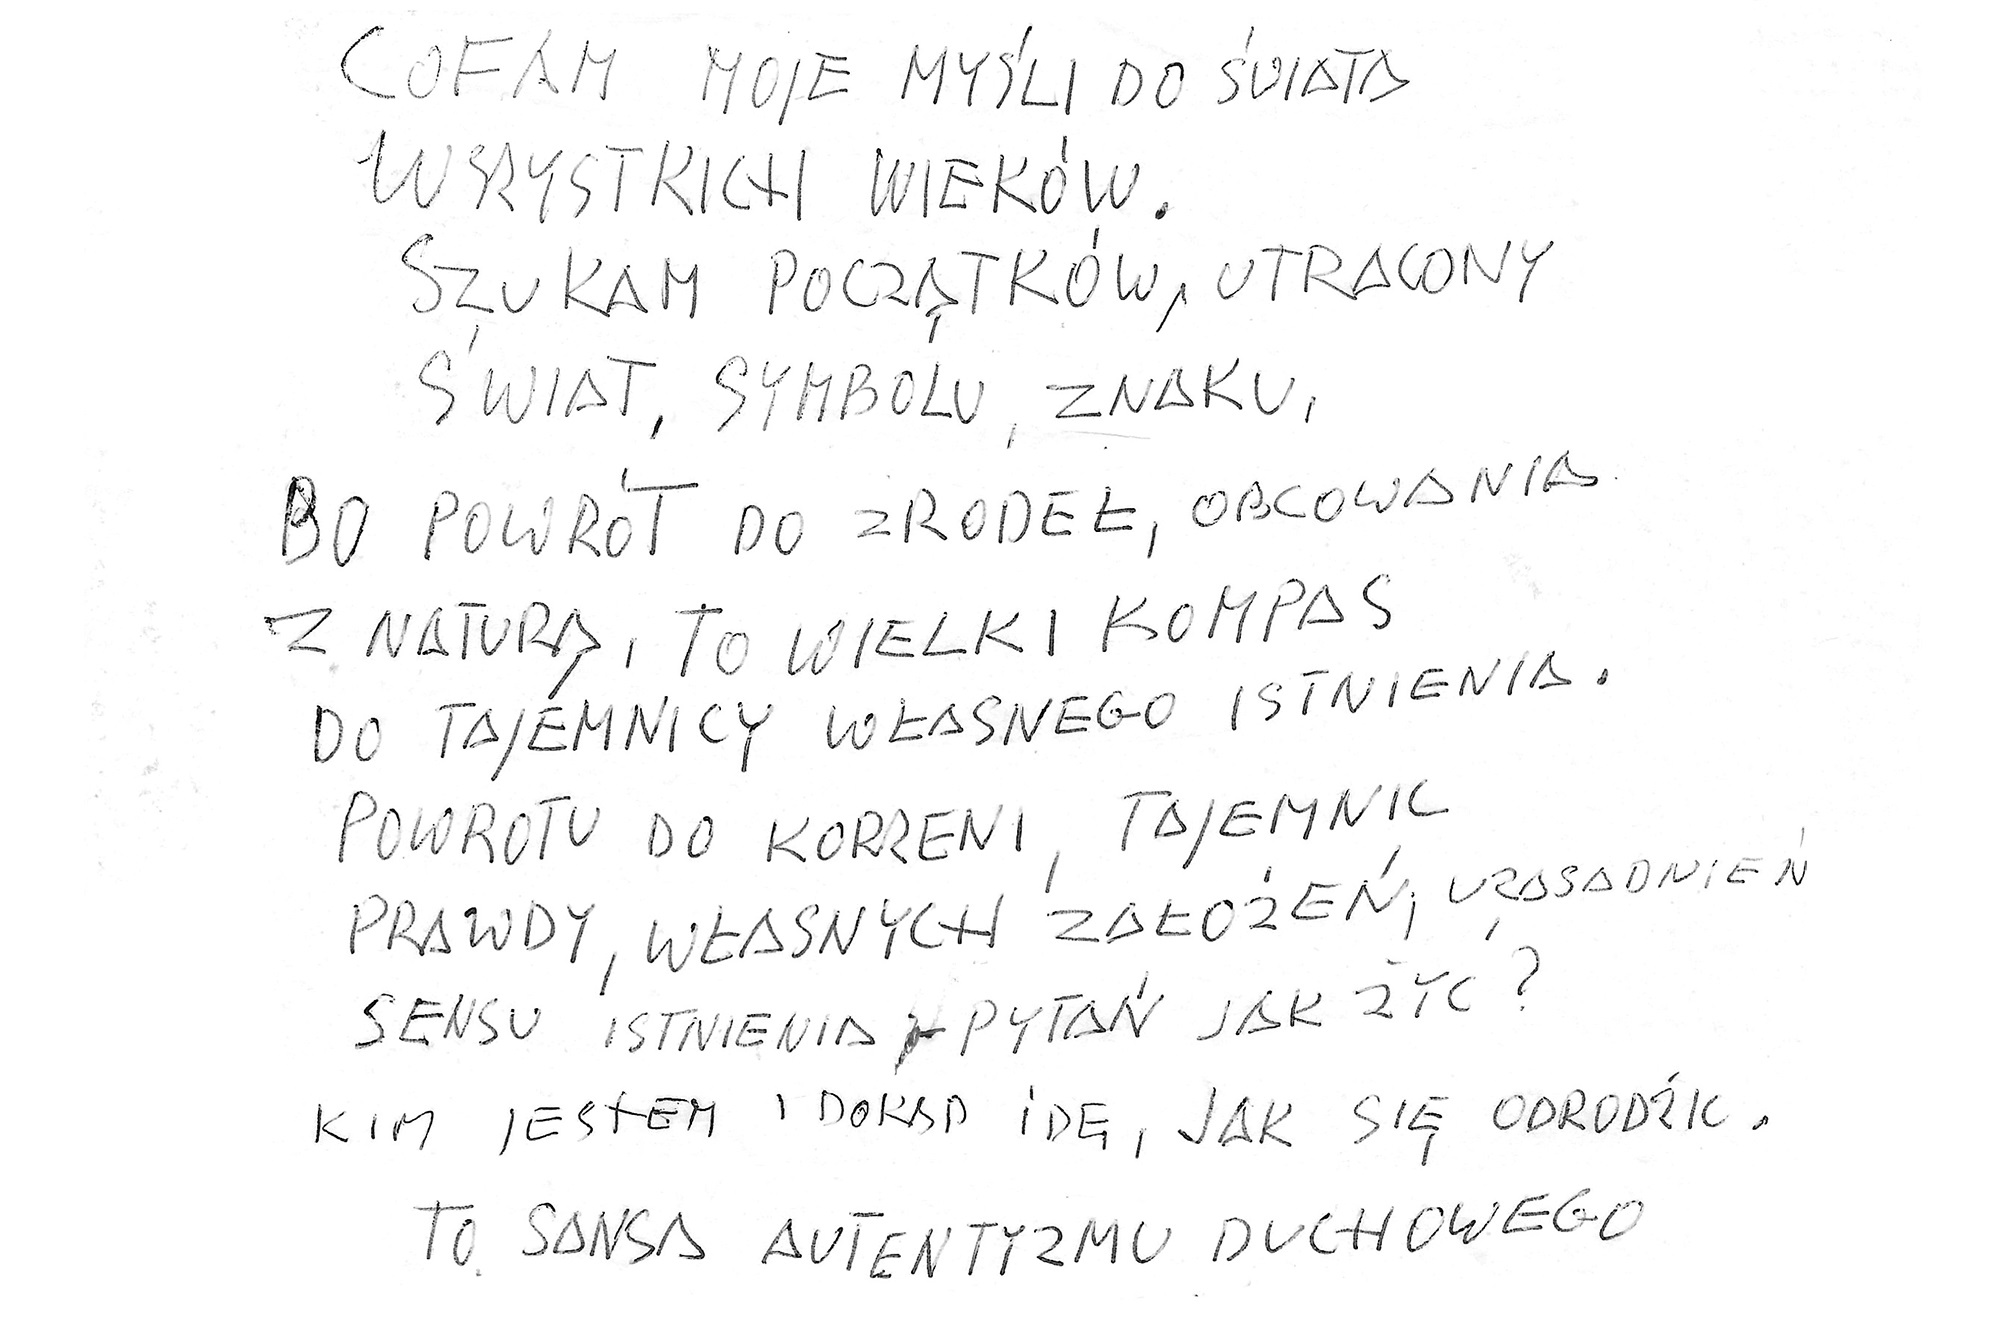 COFAM MOJE MYŚLI DO ŚWIATA
WSZYSTKICH WIEKÓW.
SZUKAM POCZĄTKÓW, UTRACONY
ŚWIAT, SYMBOLU, ZNAKU,
BO POWRÓT DO ZRODEŁ, OBCOWANIA
Z NATURĄ, TO WIELKI KOMPAS
DO TAJEMNICY WŁASNEGO ISTNIENIA.
POWROTU DO KORZENI, TAJEMNIC
PRAWDY, WŁASNYCH ZAŁOŻEŃ, UZASADNIEŃ
SENSU ISTNIENIA, PYTAŃ JAK ŻYĆ?
KIM JESTEM I DOKĄD IDĘ, JAK SIĘ ODRODZIĆ.
TO SANSA AUTENTYZMU DUCHOWEGO